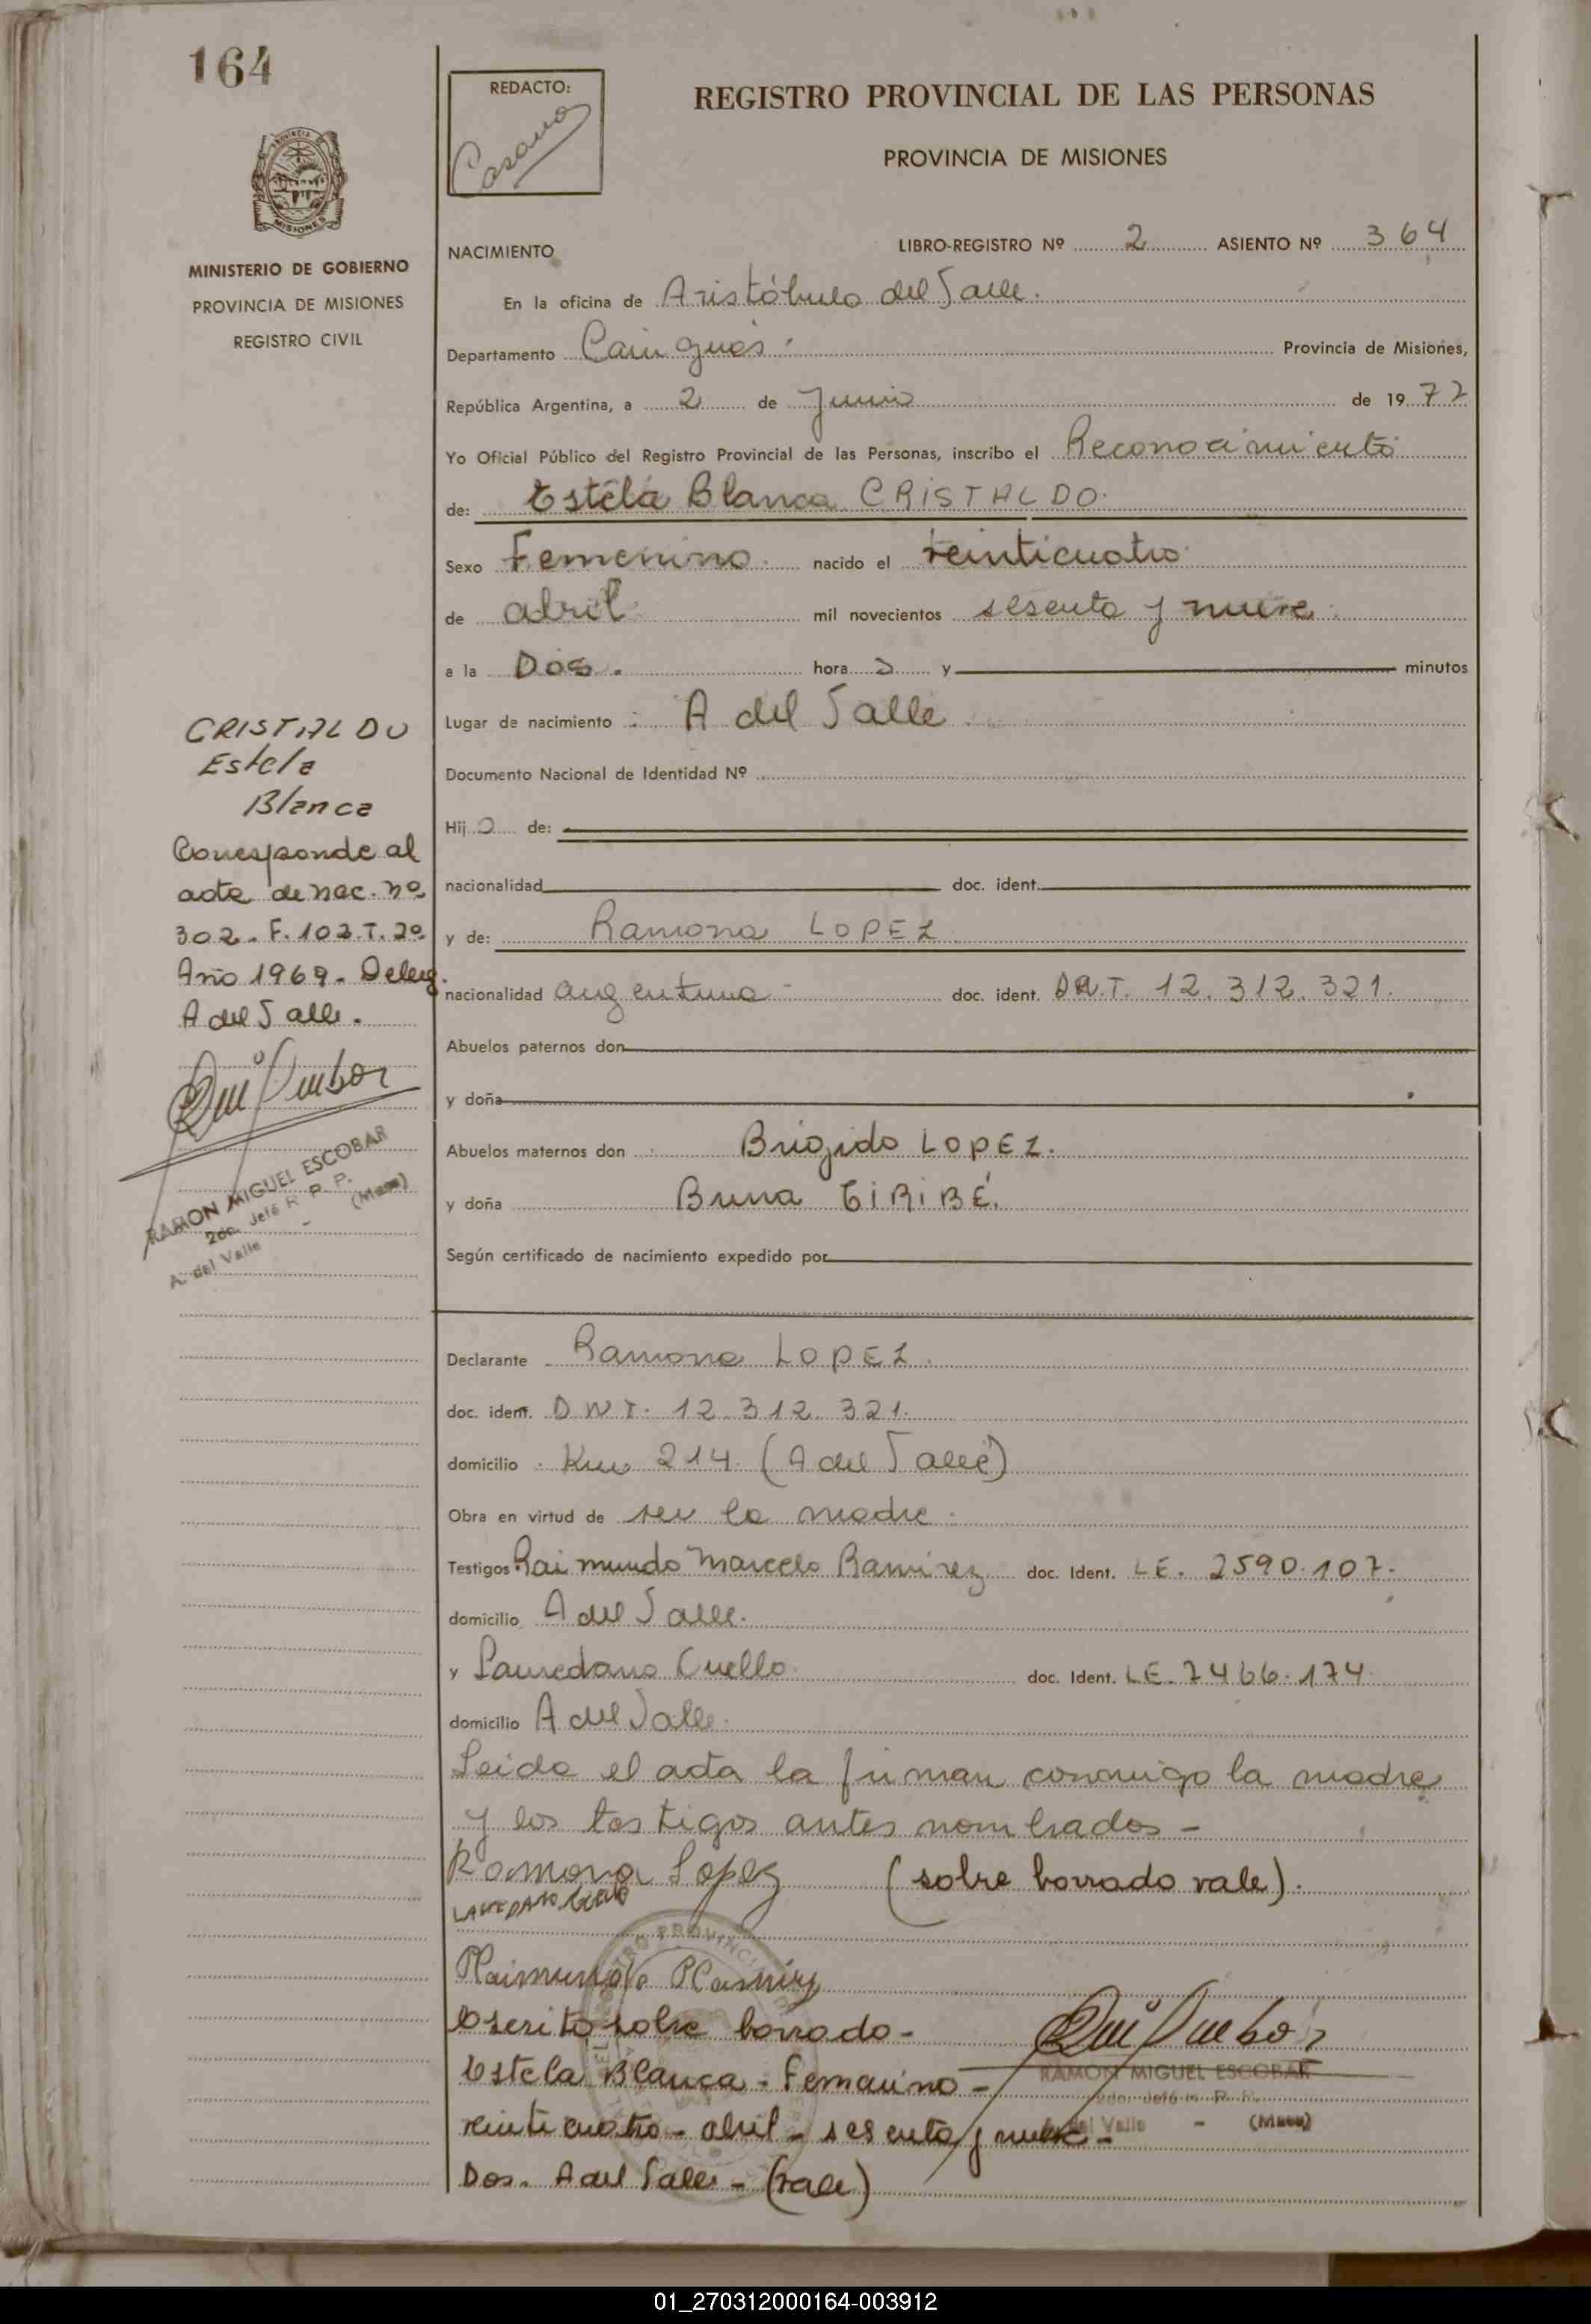 164
REDACTO:
REGISTRO PROVINCIAL DE LAS PERSONAS
PROVINCIA DE MISIONES
PROVINCIA
MISIONES
MINISTERIO DE GOBIERNO
PROVINCIA DE MISIONES
REGISTRO CIVIL
NACIMIENTO
LIBRO-REGISTRO Nº 2 ASIENTO Nº 364
En la oficina de Aristóbulo del Valle.
Departamento Cainguás. Provincia de Misiones,
República Argentina, a 2 de Junio de 1977
Yo Oficial Público del Registro Provincial de las Personas, inscribo el Reconocimiento
de: Estela Blanca CRISTALDO.
Sexo Femenino. nacido el veinticuatro
de abril mil novecientos sesenta y nueve.
a la Dos. hora s y minutos
Lugar de nacimiento : A del Valle
Documento Nacional de Identidad Nº
Hij a de:
nacionalidad doc. ident.
y de: Ramona LOPEZ.
nacionalidad argentina - doc. ident. D.N.I. 12.312.321.
Abuelos paternos don
y doña
Abuelos maternos don Brigido LOPEZ.
y doña Bruna TIRIBÉ.
Según certificado de nacimiento expedido por
CRISTALDO
Estela
Blanca
Corresponde al
acta de nac. nº
302. F. 102. T. 2º
Año 1969. Deleg.
A del Valle.
RAMON MIGUEL ESCOBAR
2do. Jefe R. P. P.
A. del Valle - (Mnes)
Declarante Ramona LOPEZ.
doc. ident. D.N.I. 12.312.321.
domicilio Km 214 (A del Valle)
Obra en virtud de ser la madre.
Testigos Raimundo Marcelo Ramirez doc. Ident. LE. 2590.107.
domicilio A del Valle.
y Lauredano Cuello. doc. Ident. LE. 7466.174.
domicilio A del Valle.
Leida el acta la firman conmigo la madre
y los testigos antes nombrados -
Ramona Lopez (sobre borrado vale).
Raimundo Ramirez
Escrito sobre borrado -
Estela Blanca - Femenino -
RAMON MIGUEL ESCOBAR
2do. Jefe R. P. P.
A. del Valle - (Mnes)
veinticuatro - abril - sesenta y nueve -
Dos. A del Valle - (vale)
01_270312000164-003912